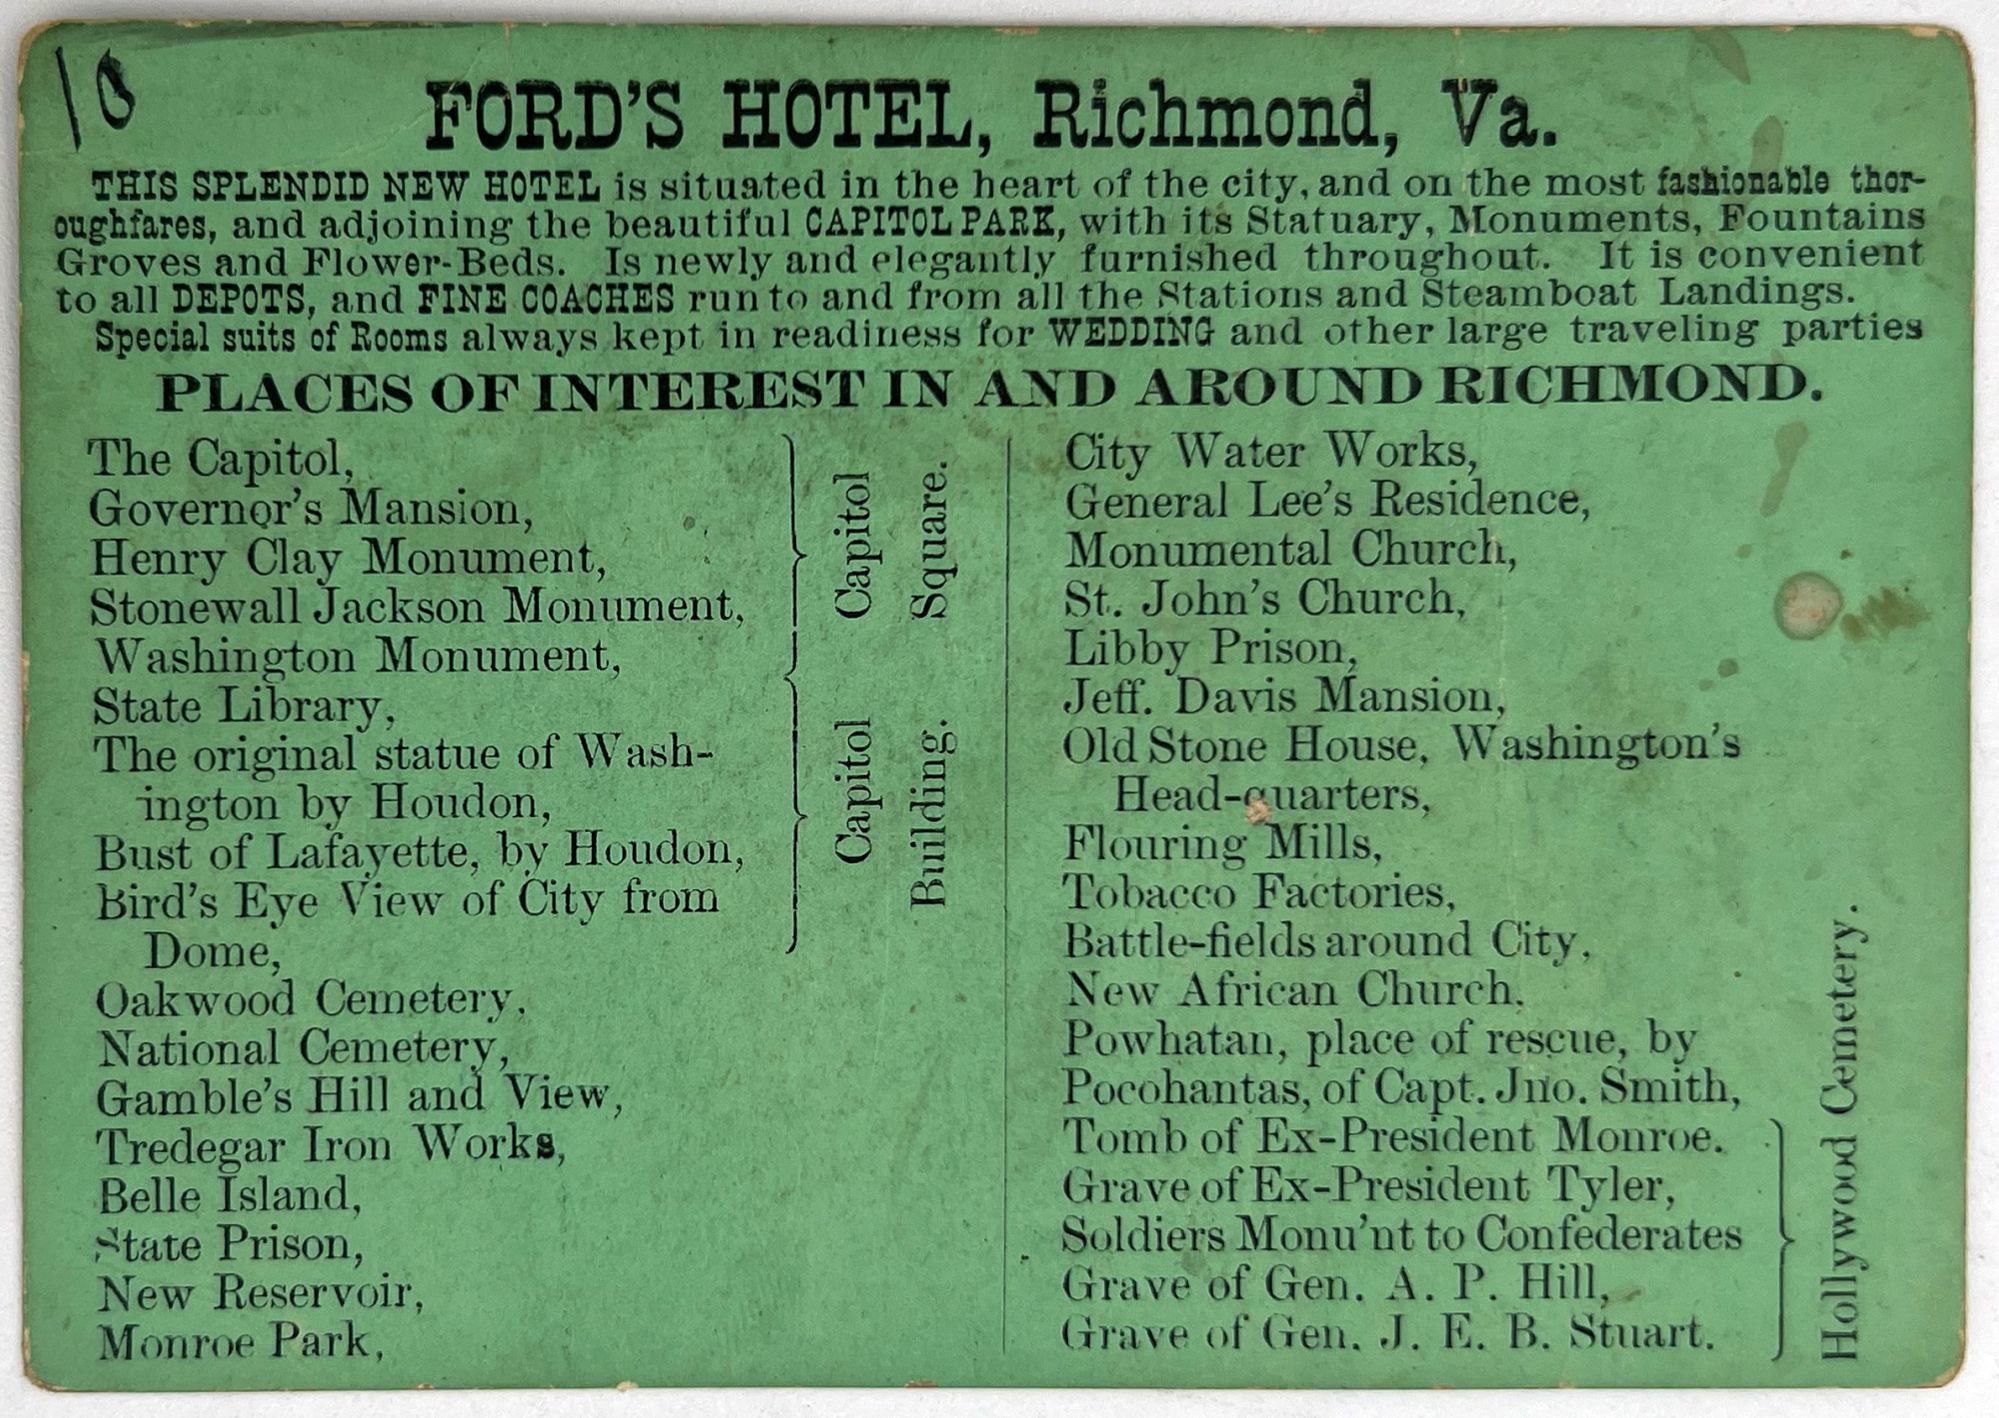 10
FORD'S HOTEL, Richmond, Va.
THIS SPLENDID NEW HOTEL is situated in the heart of the city, and on the most fashionable thor-
oughfares, and adjoining the beautiful CAPITOL PARK, with its Statuary, Monuments, Fountains
Groves and Flower-Beds. Is newly and elegantly furnished throughout. It is convenient
to all DEPOTS, and FINE COACHES run to and from all the Stations and Steamboat Landings.
Special suits of Rooms always kept in readiness for WEDDING and other large traveling parties
PLACES OF INTEREST IN AND AROUND RICHMOND.
The Capitol,
Governor's Mansion,
Henry Clay Monument,
Stonewall Jackson Monument,
Washington Monument,
Capitol
Square.
State Library,
The original statue of Wash-
ington by Houdon,
Bust of Lafayette, by Houdon,
Bird's Eye View of City from
Dome,
Capitol
Building.
Oakwood Cemetery,
National Cemetery,
Gamble's Hill and View,
Tredegar Iron Works,
Belle Island,
State Prison,
New Reservoir,
Monroe Park,
City Water Works,
General Lee's Residence,
Monumental Church,
St. John's Church,
Libby Prison,
Jeff. Davis Mansion,
Old Stone House, Washington's
Head-quarters,
Flouring Mills,
Tobacco Factories,
Battle-fields around City,
New African Church.
Powhatan, place of rescue, by
Pocohantas, of Capt. Jno. Smith,
Tomb of Ex-President Monroe.
Grave of Ex-President Tyler,
Soldiers Monu'nt to Confederates
Grave of Gen. A. P. Hill,
Grave of Gen. J. E. B. Stuart.
Hollywood Cemetery.